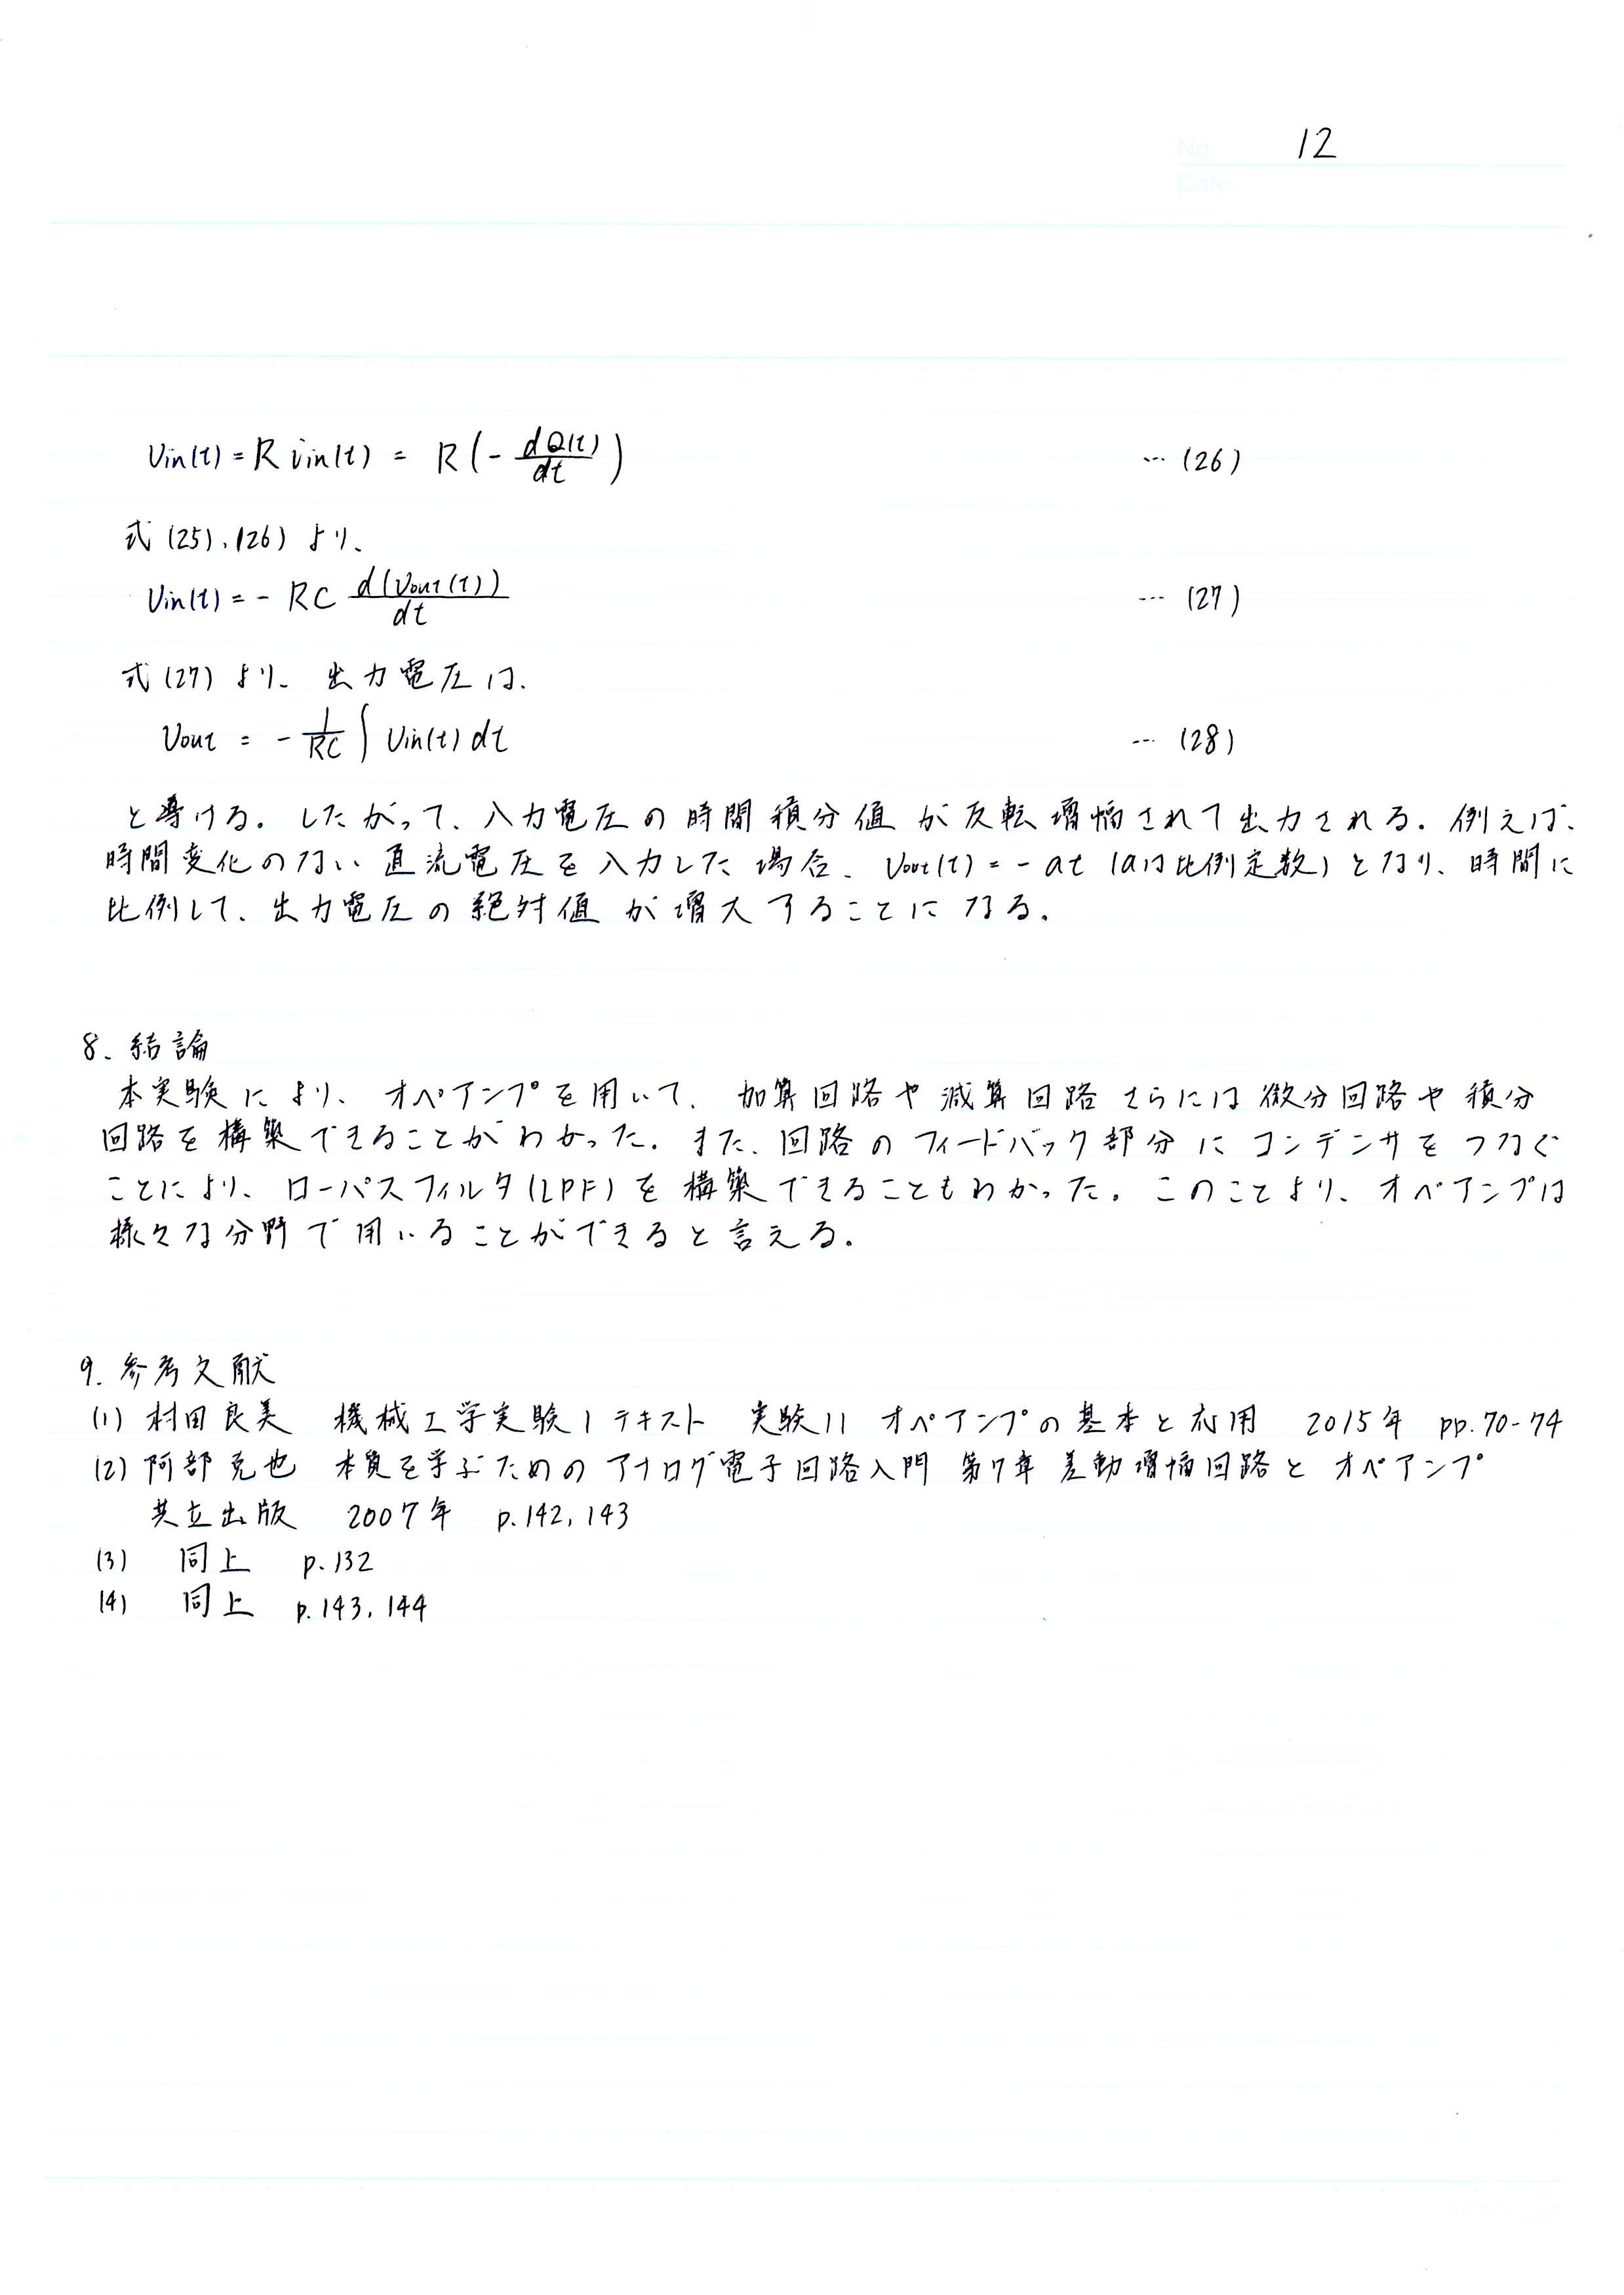 No. 12
Date
Vin(t) = R iin(t) = R(- dQ(t)/dt) … (26)
式(25), (26) より、
Vin(t) = - RC d(Vout(t))/dt … (27)
式(27) より、出力電圧は、
Vout = - 1/RC ∫ Vin(t) dt … (28)
と導ける。したがって、入力電圧の時間積分値が反転増幅されて出力される。例えば、
時間変化のない直流電圧を入力した場合、Vout(t) = - at (aは比例定数) となり、時間に
比例して、出力電圧の絶対値が増大することになる。
8. 結論
本実験により、オペアンプを用いて、加算回路や減算回路さらには微分回路や積分
回路を構築できることがわかった。また、回路のフィードバック部分にコンデンサをつなぐ
ことにより、ローパスフィルタ(LPF)を構築できることもわかった。このことより、オペアンプは
様々な分野で用いることができると言える。
9. 参考文献
(1) 村田良美 機械工学実験1テキスト 実験11 オペアンプの基本と応用 2015年 pp.70-74
(2) 阿部克也 本質を学ぶためのアナログ電子回路入門 第7章 差動増幅回路とオペアンプ
共立出版 2007年 p.142, 143
(3) 同上 p.132
(4) 同上 p.143, 144